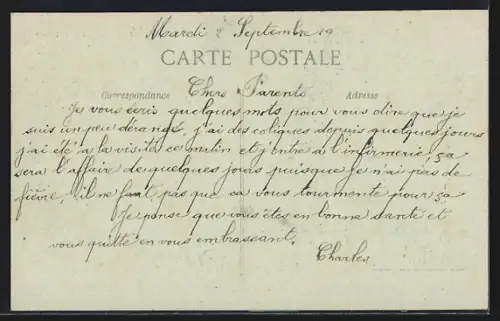 Mardi 8 Septembre 19
CARTE POSTALE
Correspondance Chers Parents Adresse
Je vous écris quelques mots pour vous dire que je
suis un peu dérangé, j'ai des coliques depuis quelques jours
j'ai été a la visite ce matin et j'entre à l'infirmerie, ça
sera l'affaire de quelques jours puisque je n'ai pas de
fièvre, il ne faut pas que ca vous tourmente pour ça
Je pense que vous êtes en bonne santé et
vous quitte en vous embrassant.
Charles